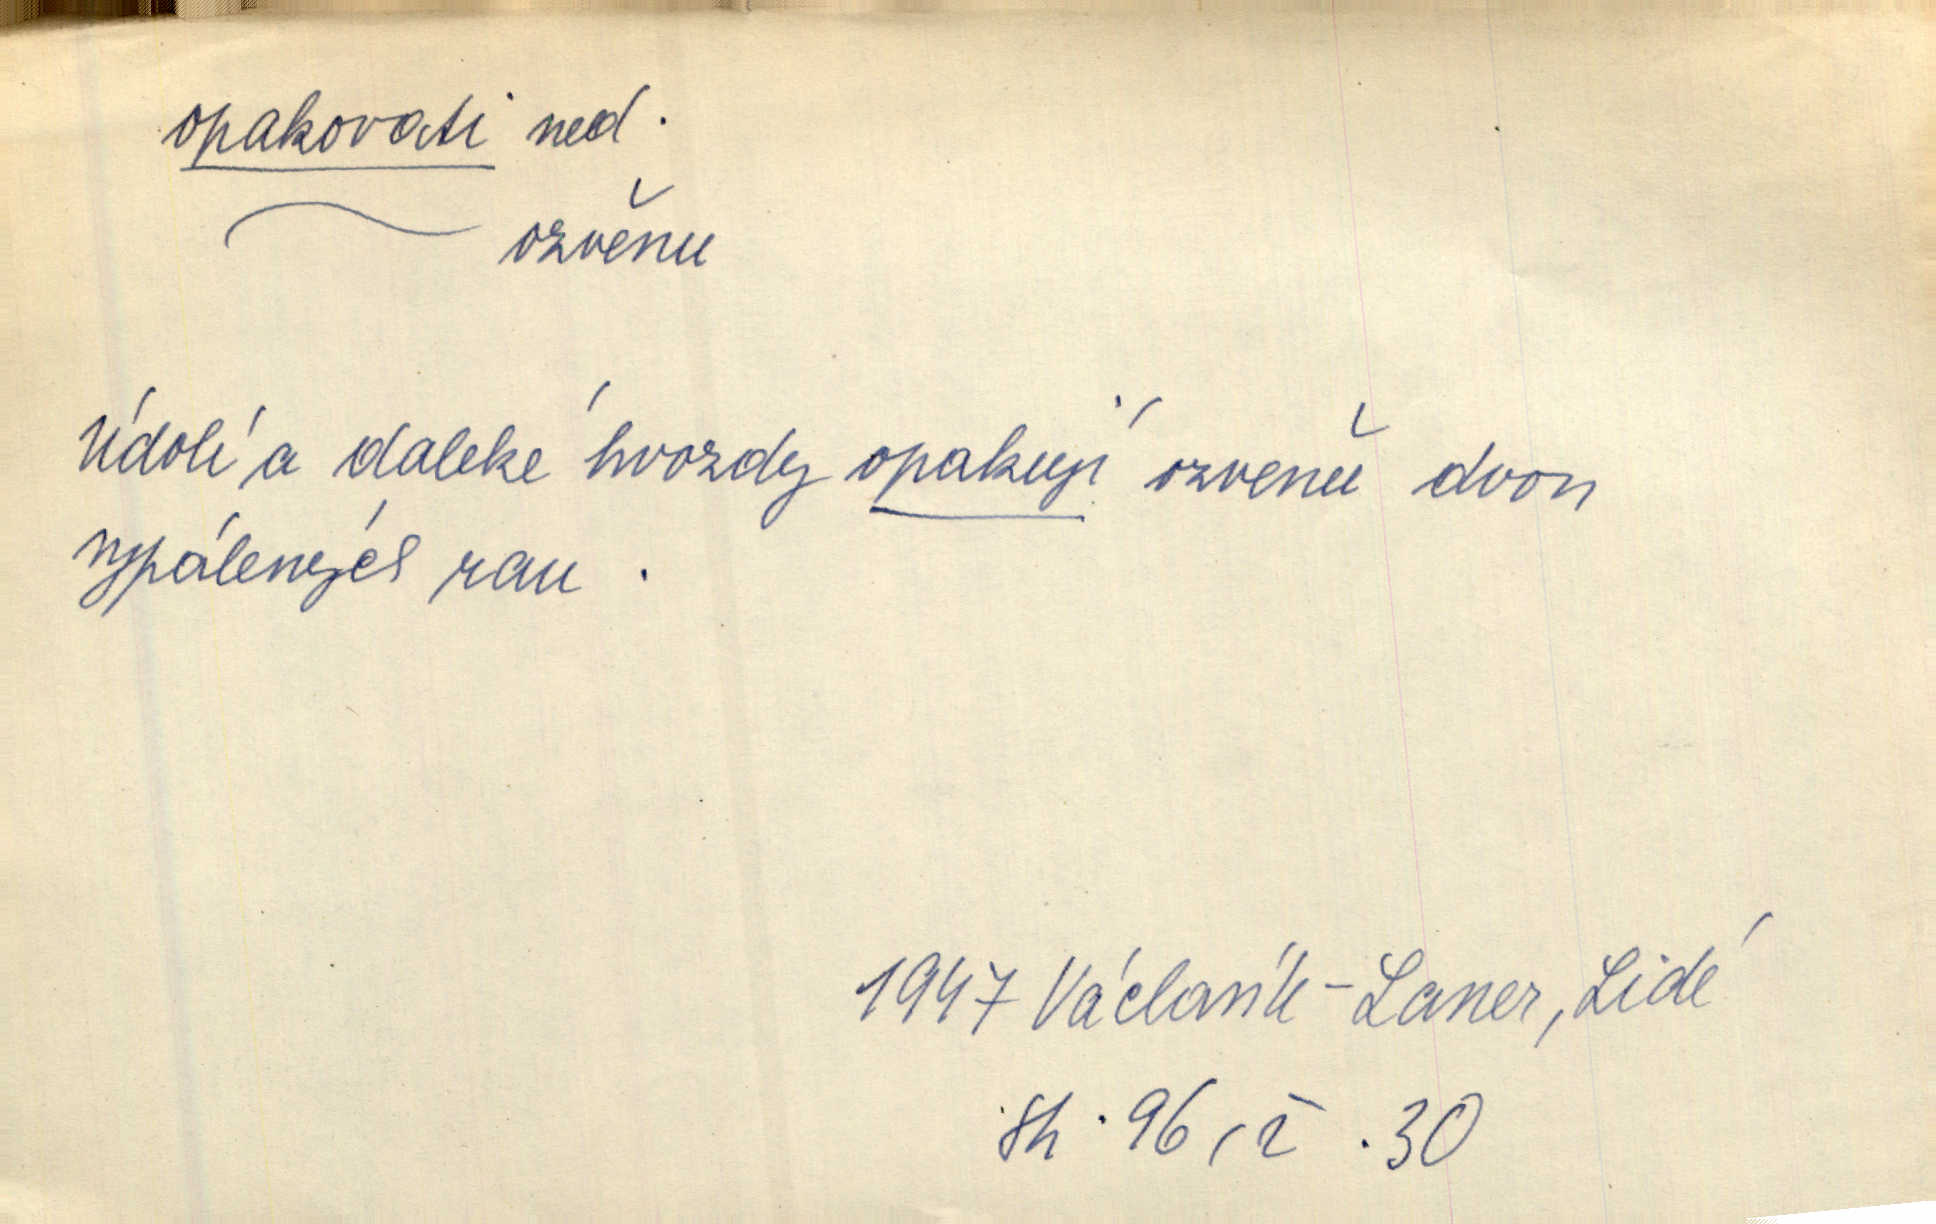 opakovati ned.
ozvěnu
Údolí a daleké hvozdy opakují ozvěnu dvou
vypálených ran.
1947 Václavík-Laner, Lidé
str. 96, ř. 30